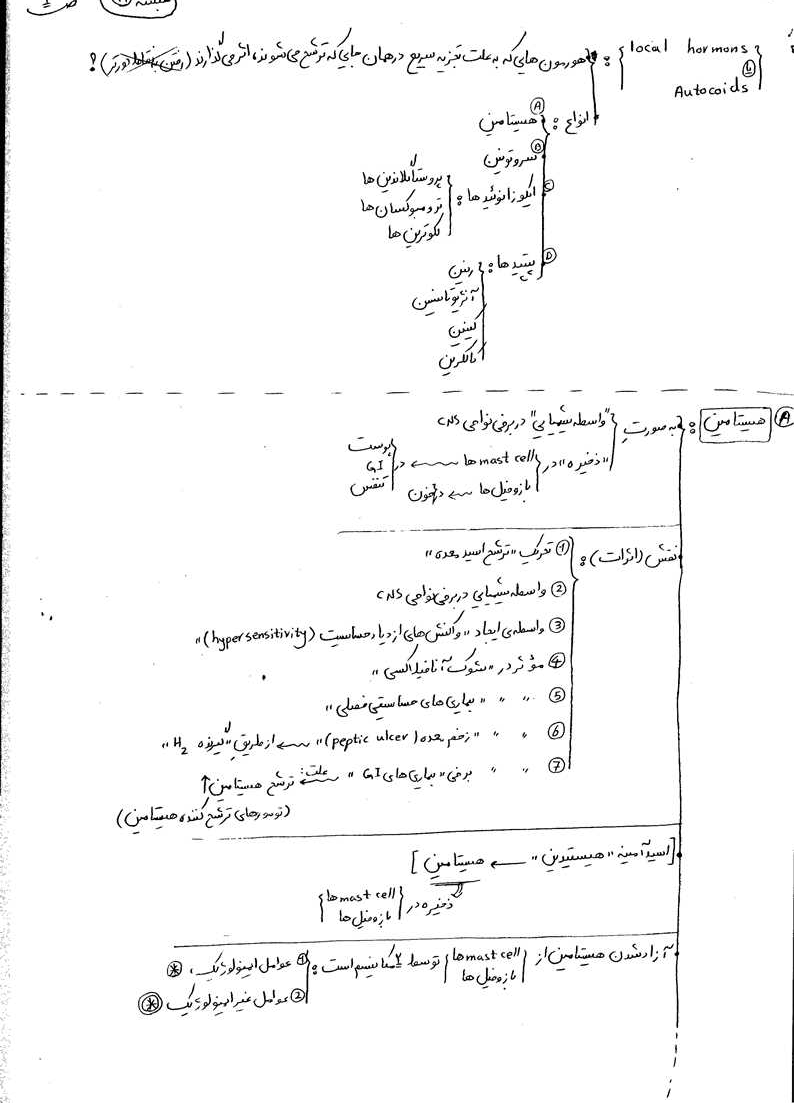 local hormons
یا
Autocoids
: هورمون هایی که به علت تجزیه سریع در همان جایی که ترشح می شوند، اثر می گذارند (رفتن به نقاط دورتر) ?
انواع :
Ⓐ هیستامین
Ⓑ سروتونین
Ⓒ ایکوزانوئیدها :
پروستاگلاندین ها
ترومبوکسان ها
لکوترین ها
Ⓓ پپتیدها :
رنین
آنژیوتانسین
کینین
کالکرین
Ⓐ هیستامین :
به صورتِ
"واسطه شیمیایی" در برخی نواحی CNS
"ذخیره" در
mast cell ها ← در
پوست
GI
تنفس
بازوفیل ها ← در خون
نقش (اثرات) :
① تحریکِ "ترشح اسید معده"
② واسطه شیمیایی در برخی نواحی CNS
③ واسطه ی ایجاد "واکنش های ازدیاد حساسیت (hypersensitivity)"
④ مؤثر در "شوک آنافیلاکسی"
⑤ " " " بیماری های حساسیتی فصلی "
⑥ " " " زخم معده (peptic ulcer) " ← از طریقِ "گیرنده H2"
⑦ " " برخی "بیماری های GI" علت: ← ترشح هیستامین ↑
(تومورهای ترشح کننده هیستامین)
[اسید آمینه "هیستیدین" ← هیستامین]
ذخیره در
mast cell ها
بازوفیل ها
آزاد شدن هیستامین از
mast cell ها
بازوفیل ها
توسط ۲ مکانیسم است :
① عوامل ایمونولوژیک، *
② عوامل غیر ایمونولوژیک *